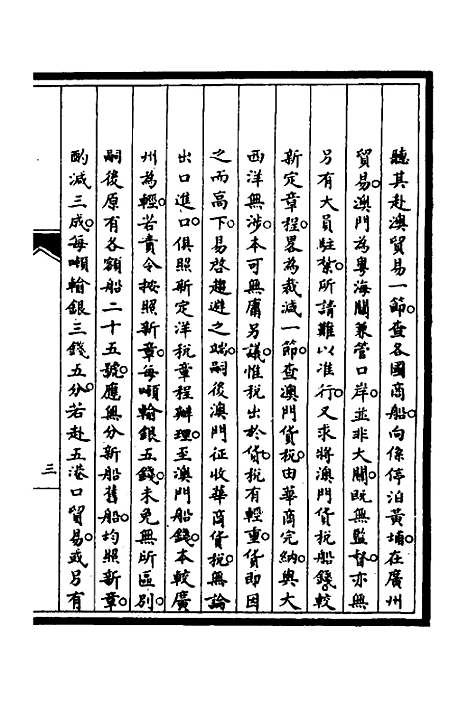 聽其赴澳貿易一節查各國商船向係停泊黃埔在廣州
貿易澳門為粵海關兼管口岸並非大關既無監督亦無
另有大員駐紮所請難以准行又求將澳門貨稅船錢較
新定章程畧為裁減一節查澳門貨稅由華商完納與大
西洋無涉本可無庸另議惟稅出於貨稅有輕重貨即因
之而高下易啓趨避之端嗣後澳門征收華商貨稅無論
出口進口俱照新定洋稅章程辦理至澳門船錢本較廣
州為輕若責令按照新章每噸輸銀五錢未免無所區別
嗣後原有各額船二十五號應無分新船舊船均照新章
酌減三成每噸輸銀三錢五分若赴五港口貿易或另有
三